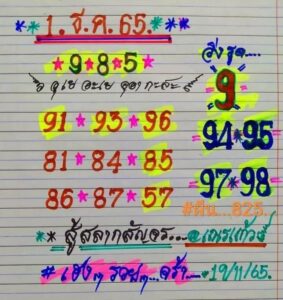 **1. ธ.ค. 65.**
*9*8*5*
วิ่งชุด....
9
91*93*96
94*95
81*84*85
97*98
86*87*57
#ฝัน...825.
** สู้สลากสัญจร...
#เฮงๆ รวยๆ...จร้า...*19/11/65.